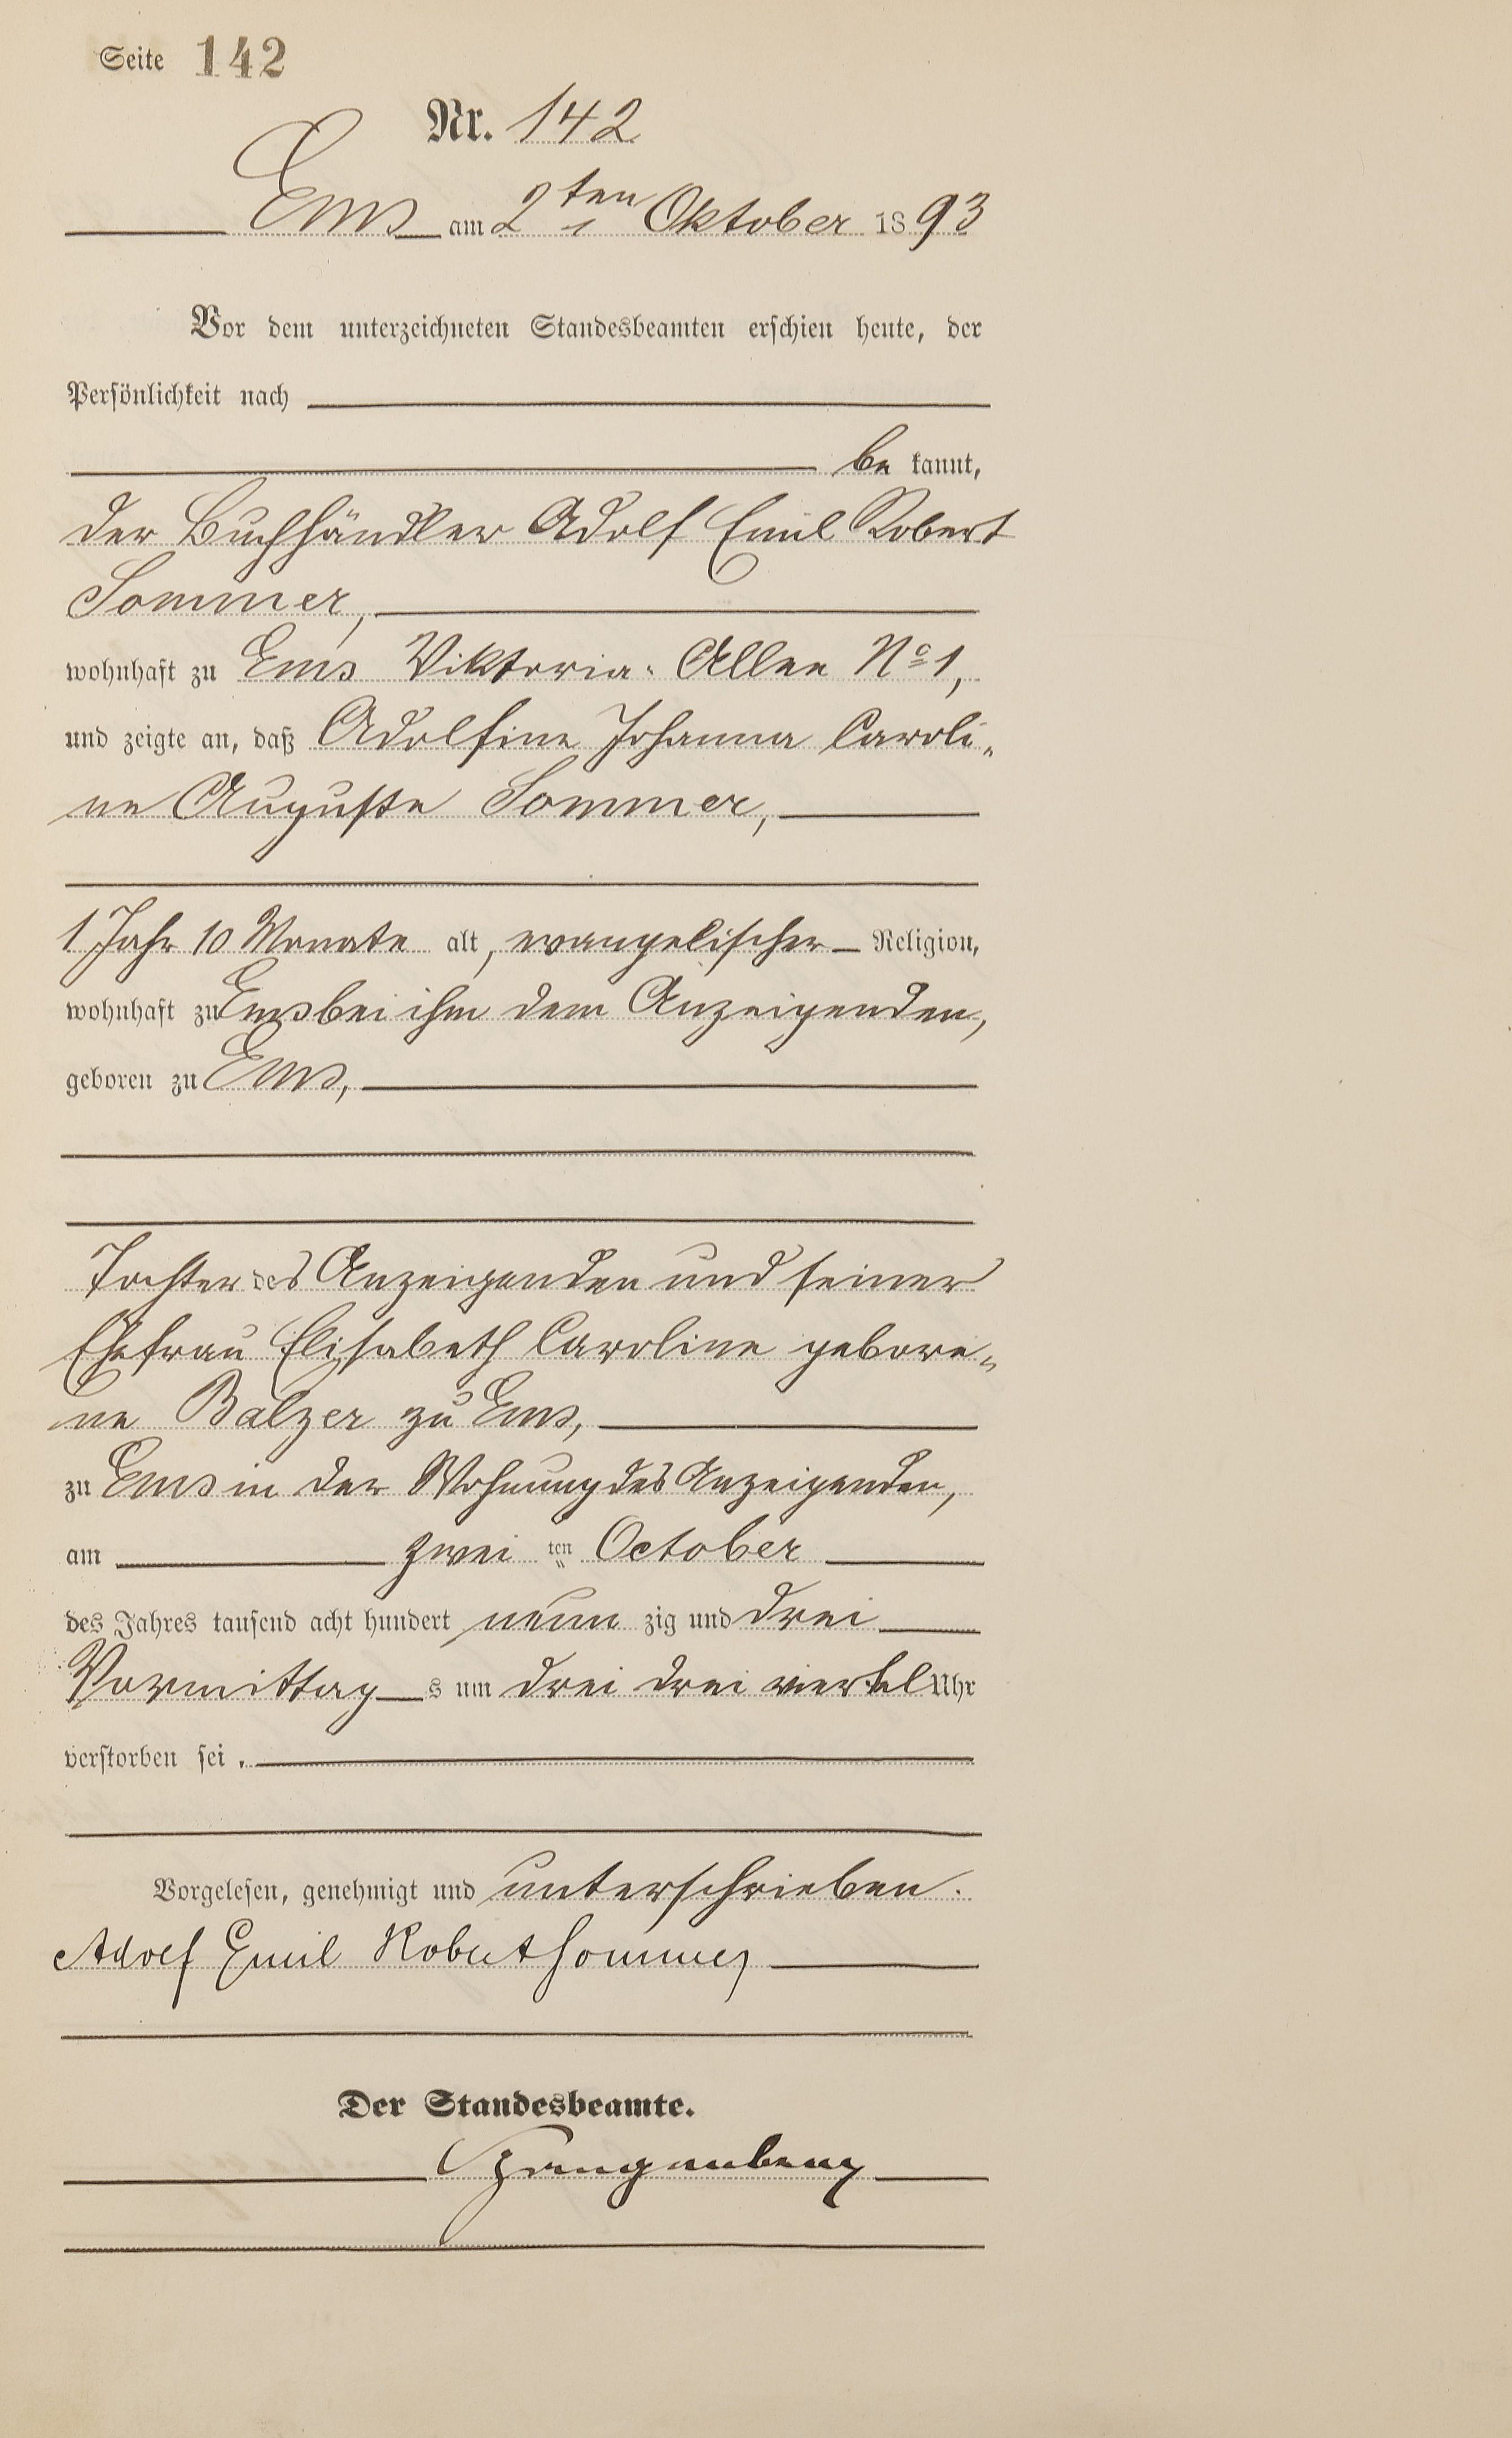 Seite 142
Nr. 142
Ems am 2ten Oktober 1893
Vor dem unterzeichneten Standesbeamten erschien heute, der
Persönlichkeit nach
be kannt,
der Buchhändler Adolf Emil Robert
Sommer,
wohnhaft zu Ems Viktoria-Allee No 1,
und zeigte an, daß Adolfine Johanna Caroli-
ne Auguste Sommer,
1 Jahr 10 Monate alt, evangelischer Religion,
wohnhaft zu Ems bei ihm dem Anzeigenden,
geboren zu Ems,
Tochter des Anzeigenden und seiner
Ehefrau Elisabeth Caroline gebore-
ne Balzer zu Ems,
zu Ems in der Wohnung des Anzeigenden,
am zwei ten October
des Jahres tausend acht hundert neun zig und drei
Vormittag s um drei drei viertel Uhr
verstorben sei.
Vorgelesen, genehmigt und unterschrieben.
Adolf Emil Robert Sommer
Der Standesbeamte.